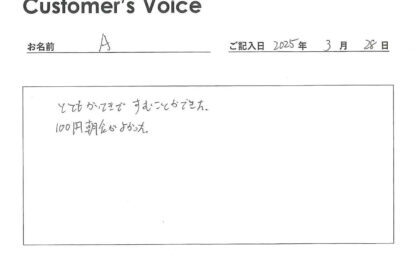 Customer's Voice
お名前 A ご記入日 2025年 3月 28日
とてもかいてきで すむことができた。
100円朝食がよかった。